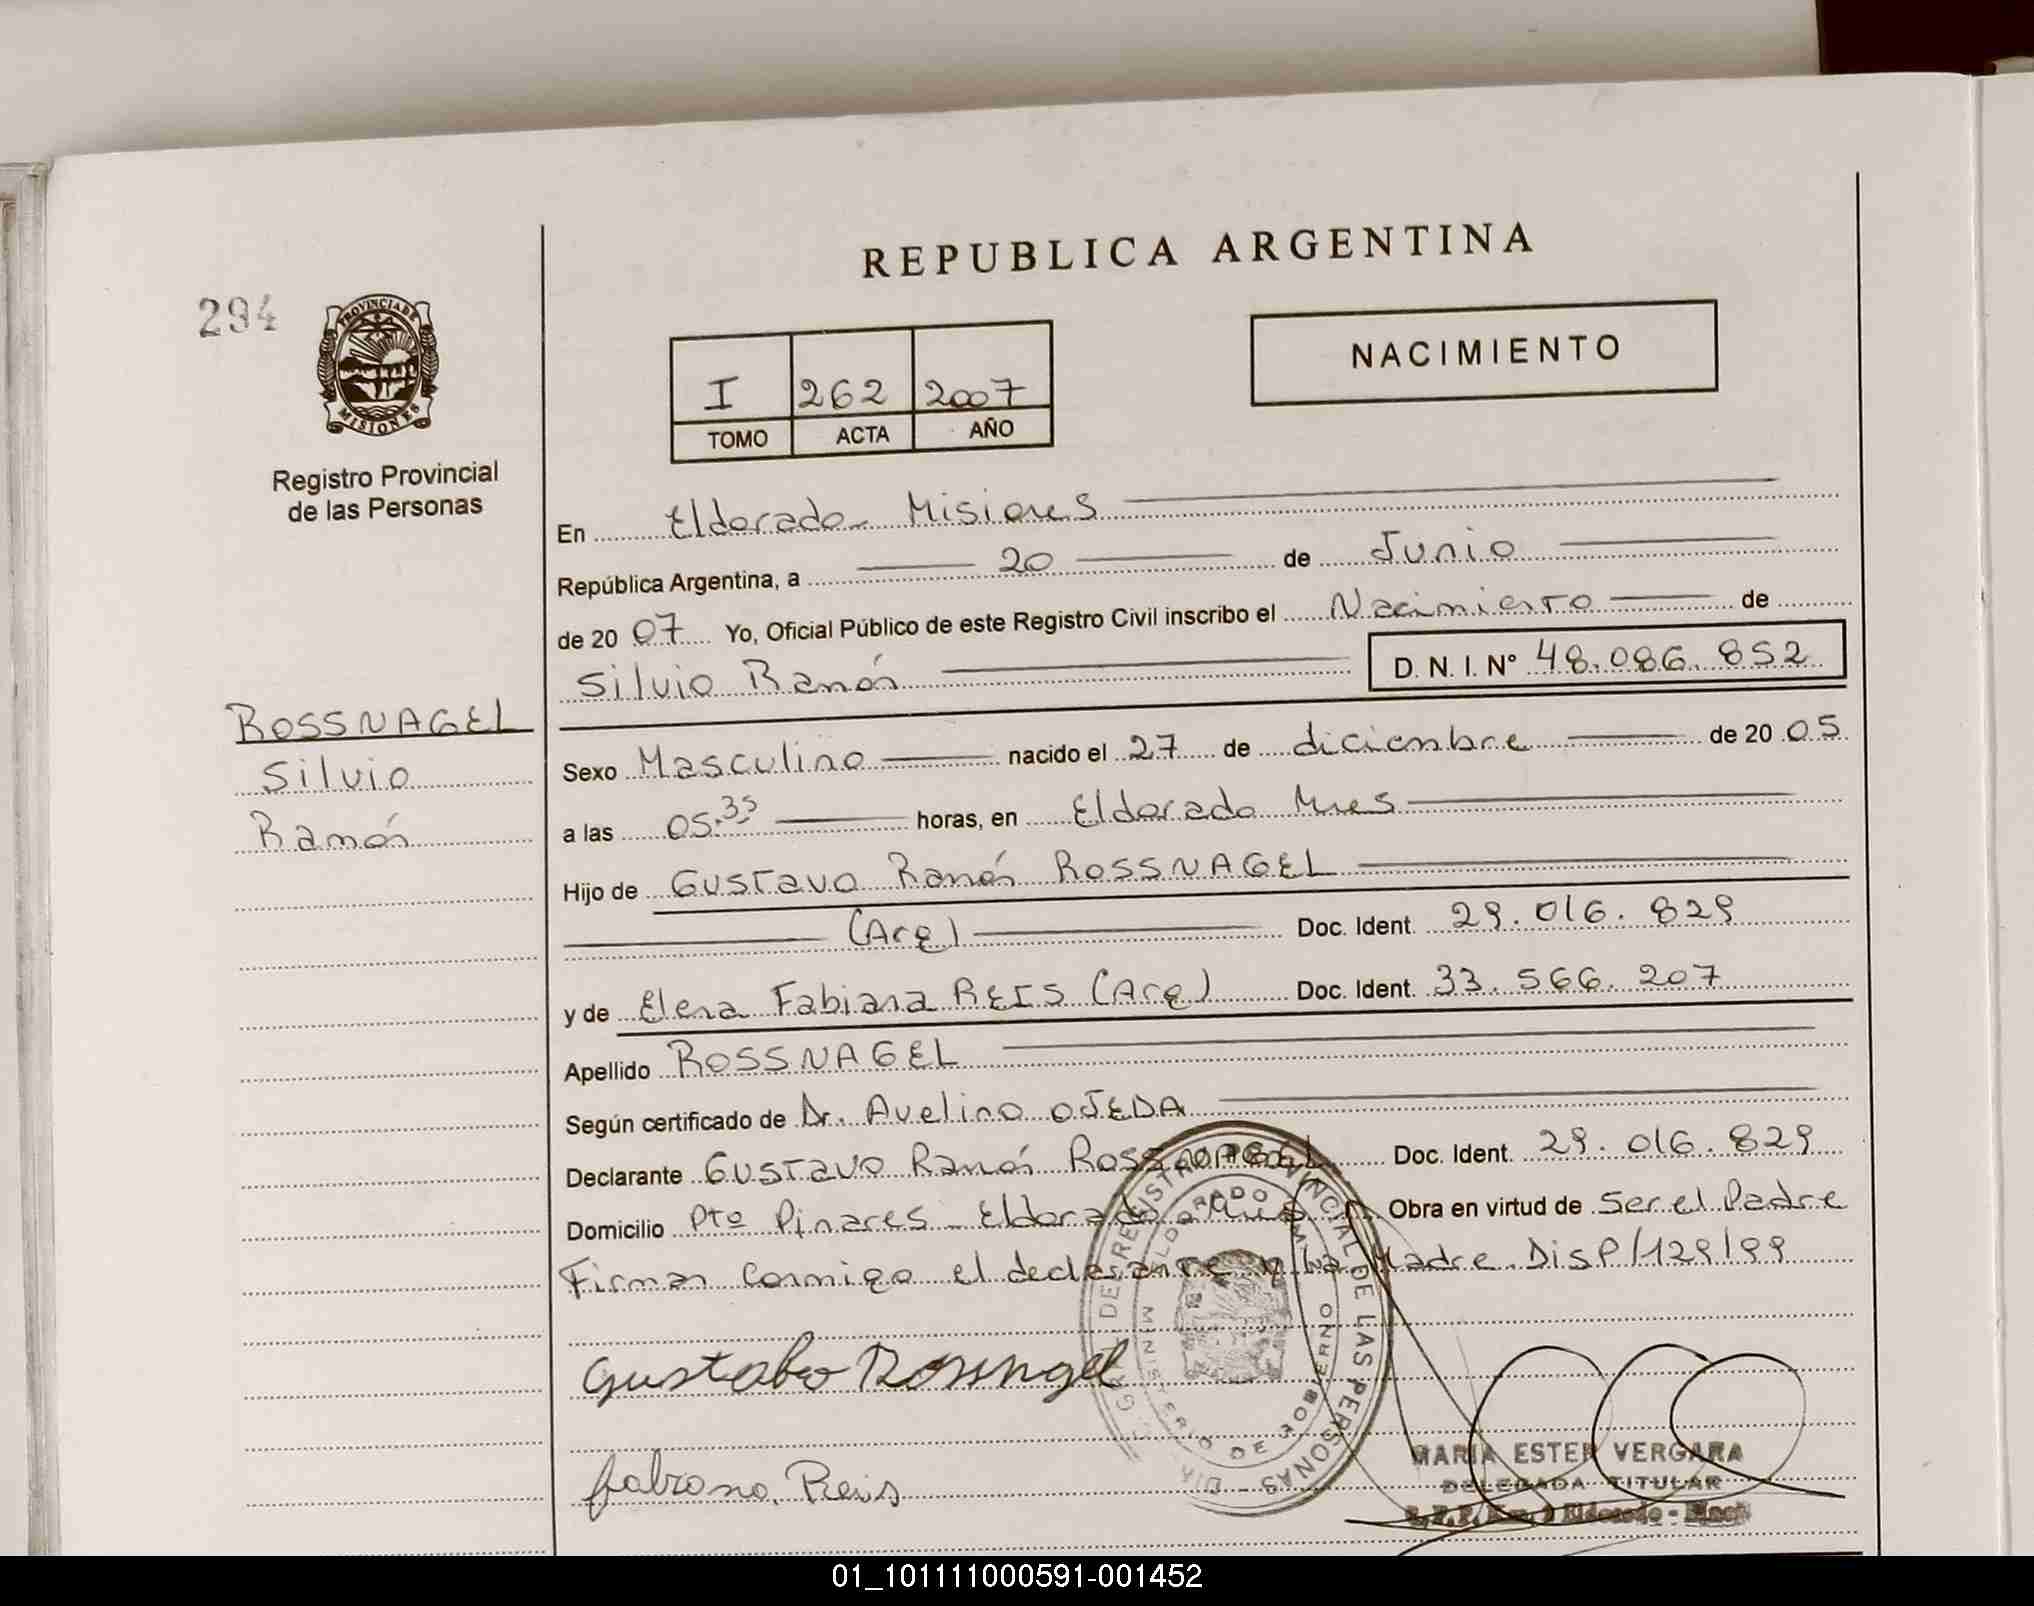 REPUBLICA ARGENTINA
294
PROVINCIA DE
MISIONES
Registro Provincial
de las Personas
I 262 2007
TOMO ACTA AÑO
NACIMIENTO
En Eldorado - Misiones
República Argentina, a 20 de Junio
de 20 07 Yo, Oficial Público de este Registro Civil inscribo el Nacimiento de
Silvio Ramón D. N. I. Nº 48.086.852
ROSSNAGEL
Silvio
Ramón
Sexo Masculino nacido el 27 de diciembre de 20 05
a las 05:35 horas, en Eldorado Mnes
Hijo de Gustavo Ramón ROSSNAGEL
(Arg) Doc. Ident. 29.016.829
y de Elena Fabiana REIS (Arg) Doc. Ident. 33.566.207
Apellido ROSSNAGEL
Según certificado de Dr. Avelino OJEDA
Declarante Gustavo Ramón ROSSNAGEL Doc. Ident. 29.016.829
Domicilio Pto Pinares - Eldorado - Mnes Obra en virtud de Ser el Padre
Firman conmigo el declarante y la Madre. Disp/129/99
DIR. GRAL. DE REGISTRO PROVINCIAL DE LAS PERSONAS
ELDORADO
MINISTERIO DE GOBIERNO
Gustabo Rossngel
fabiana Reis
MARIA ESTER VERGARA
DELEGADA TITULAR
Eldorado
01_101111000591-001452